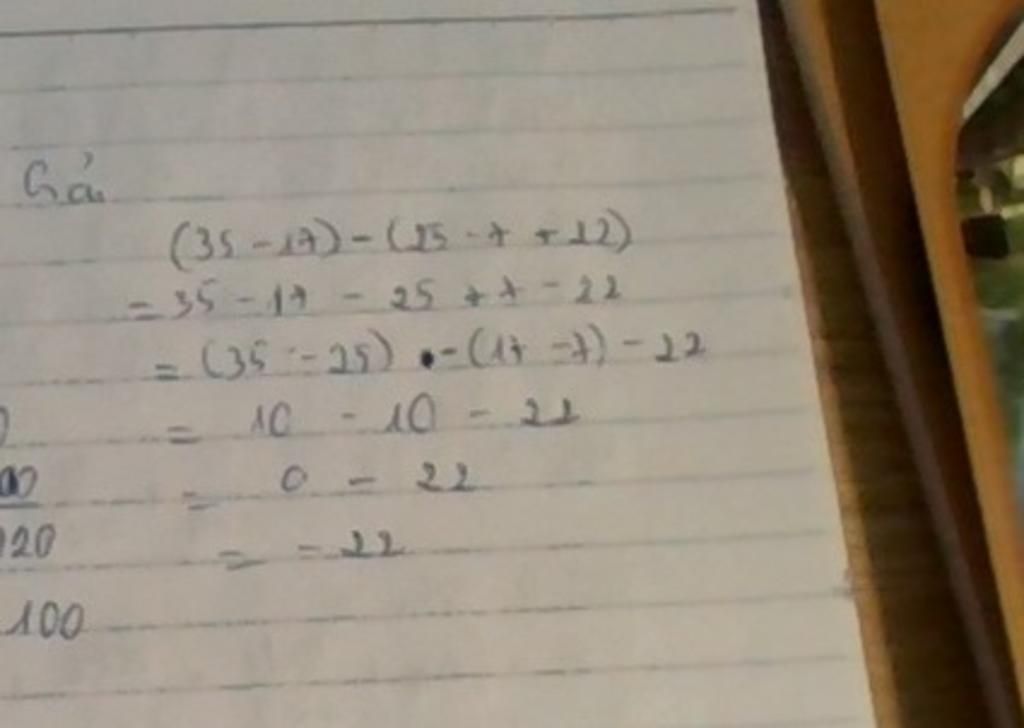 Giải
(35 - 17) - (25 - 7 + 22)
= 35 - 17 - 25 + 7 - 22
= (35 - 25) - (17 - 7) - 22
= 10 - 10 - 22
= 0 - 22
120 = - 22
100